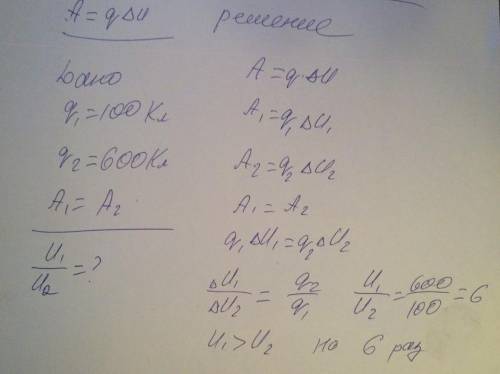 A = qΔU
решение
Дано
q₁ = 100 Кл
q₂ = 600 Кл
A₁ = A₂
U₁/U₂ = ?
A = q·ΔU
A₁ = q₁ ΔU₁
A₂ = q₂ ΔU₂
A₁ = A₂
q₁ ΔU₁ = q₂ ΔU₂
ΔU₁/ΔU₂ = q₂/q₁ U₁/U₂ = 600/100 = 6
U₁ > U₂ на 6 раз